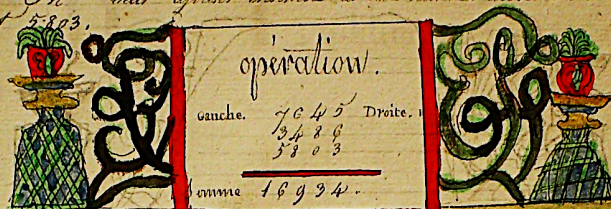 5803.
opération.
Gauche. 7645 Droite.
3486
5803
Somme 16934.